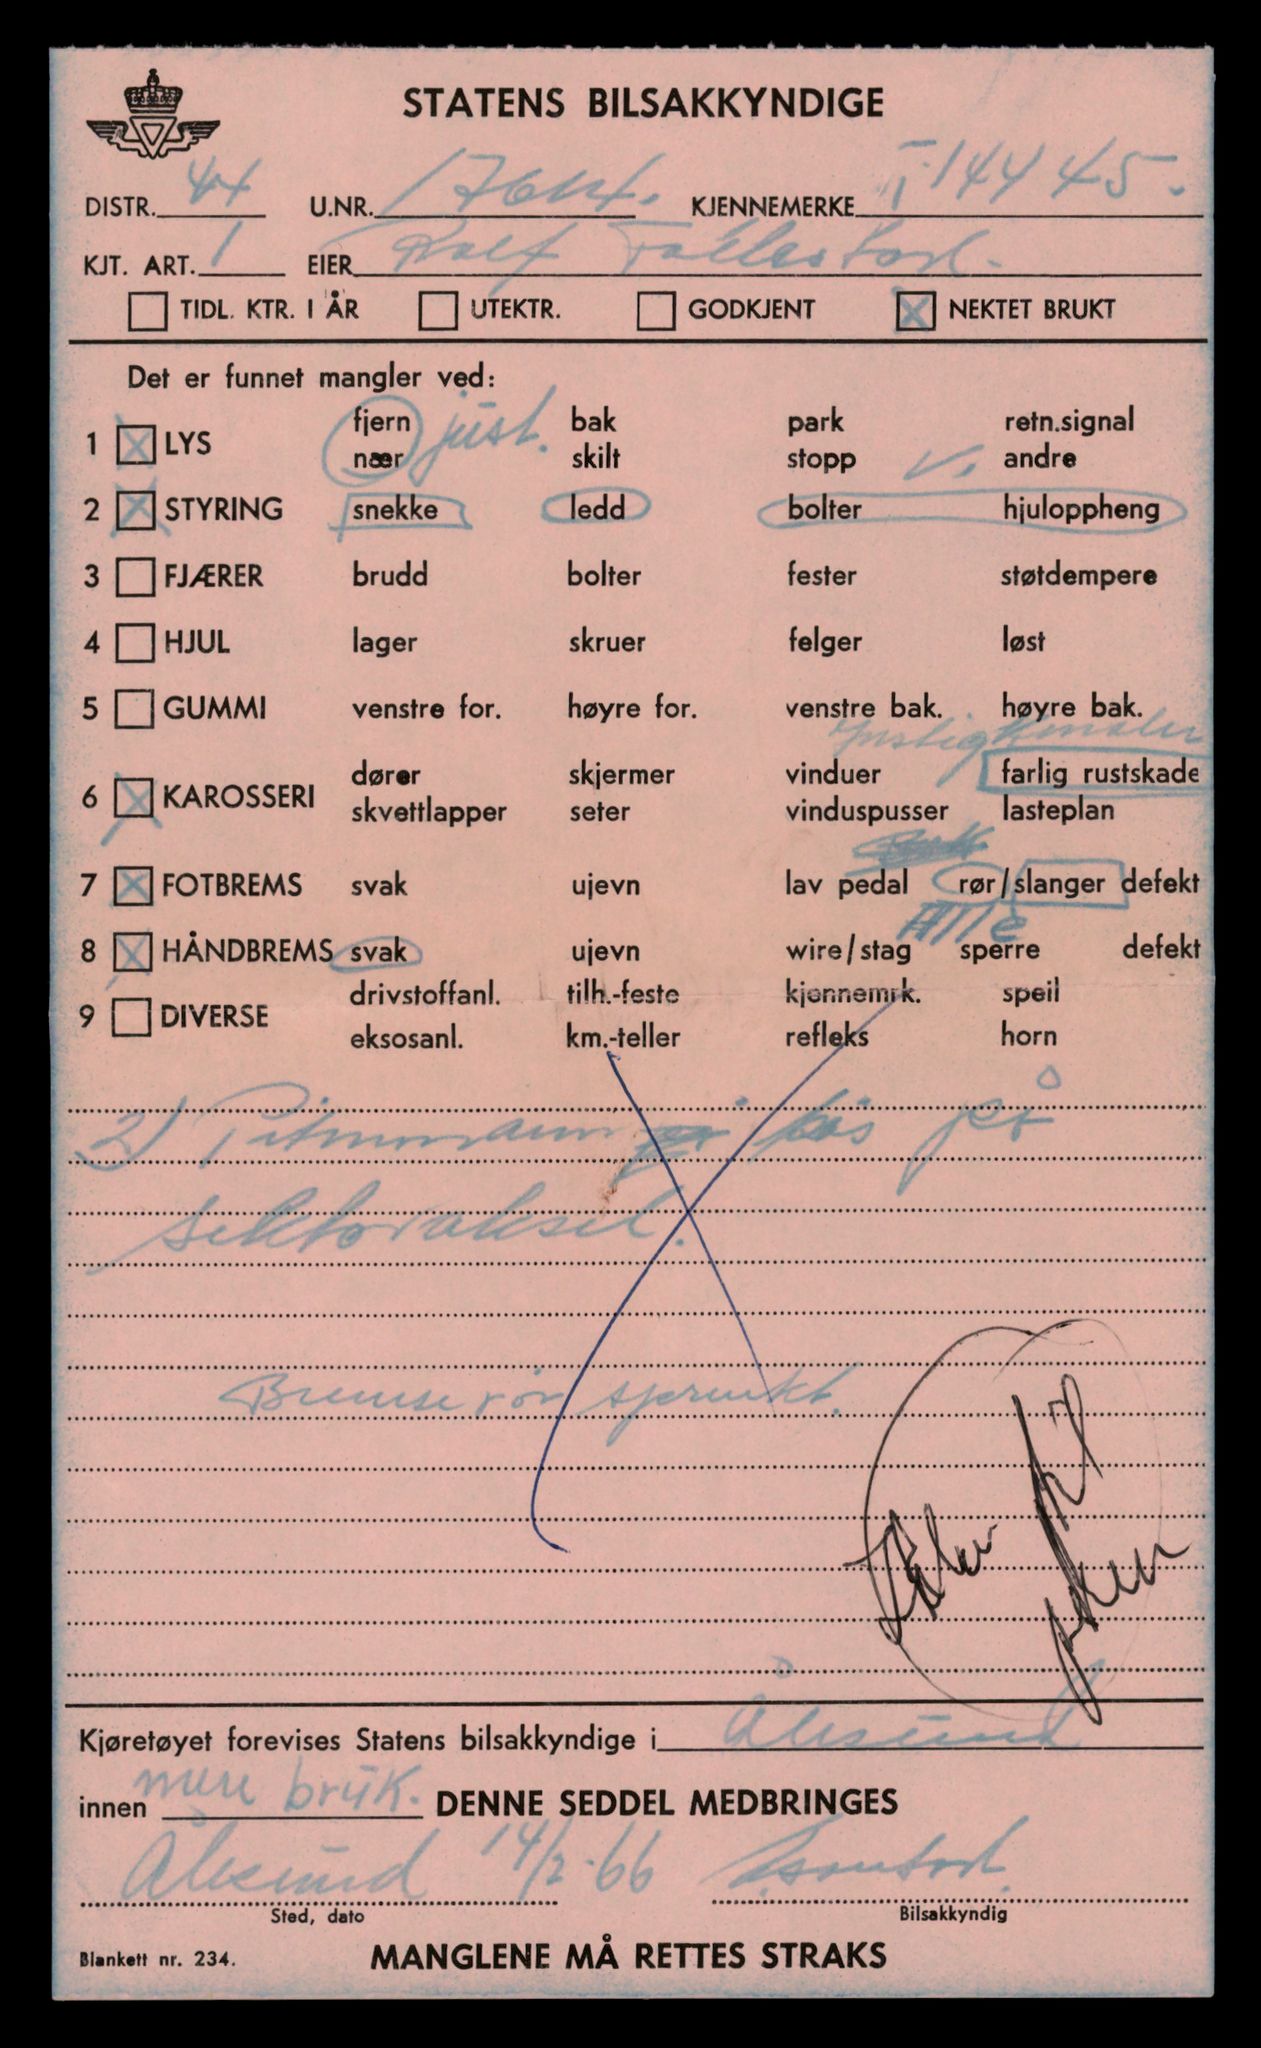 STATENS BILSAKKYNDIGE
DISTR. 44 U.NR. KJENNEMERKE T-14445.
KJT. ART. 1 EIER Rolf
TIDL. KTR. I ÅR UTEKTR. GODKJENT X NEKTET BRUKT
Det er funnet mangler ved:
fjern just. bak park retn.signal
1 X LYS
nær skilt stopp V. andre
2 X STYRING snekke ledd bolter hjuloppheng
3 FJÆRER brudd bolter fester støtdempere
4 HJUL lager skruer felger løst
5 GUMMI venstre for. høyre for. venstre bak. høyre bak.
dører skjermer vinduer farlig rustskade
6 X KAROSSERI
skvettlapper seter vinduspusser lasteplan
7 X FOTBREMS svak ujevn lav pedal rør/slanger defekt
Alle
8 X HÅNDBREMS svak ujevn wire/stag sperre defekt
drivstoffanl. tilh.-feste kjennemrk. speil
9 DIVERSE
eksosanl. km.-teller refleks horn
2) Pitmannarm løs på
sektoraksel.
Bremserør sprukt.
Kjøretøyet forevises Statens bilsakkyndige i Ålesund
innen mere bruk. DENNE SEDDEL MEDBRINGES
Ålesund 14/2-66
Sted, dato Bilsakkyndig
Blankett nr. 234. MANGLENE MÅ RETTES STRAKS